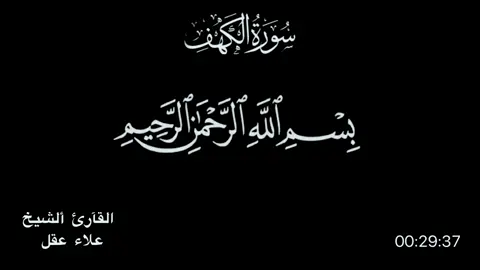 سُورَةُ الْكَهْفِ
بِسْمِ ٱللَّهِ ٱلرَّحْمَٰنِ ٱلرَّحِيمِ
القآرئ ألشيخ
علاء عقل
00:29:37